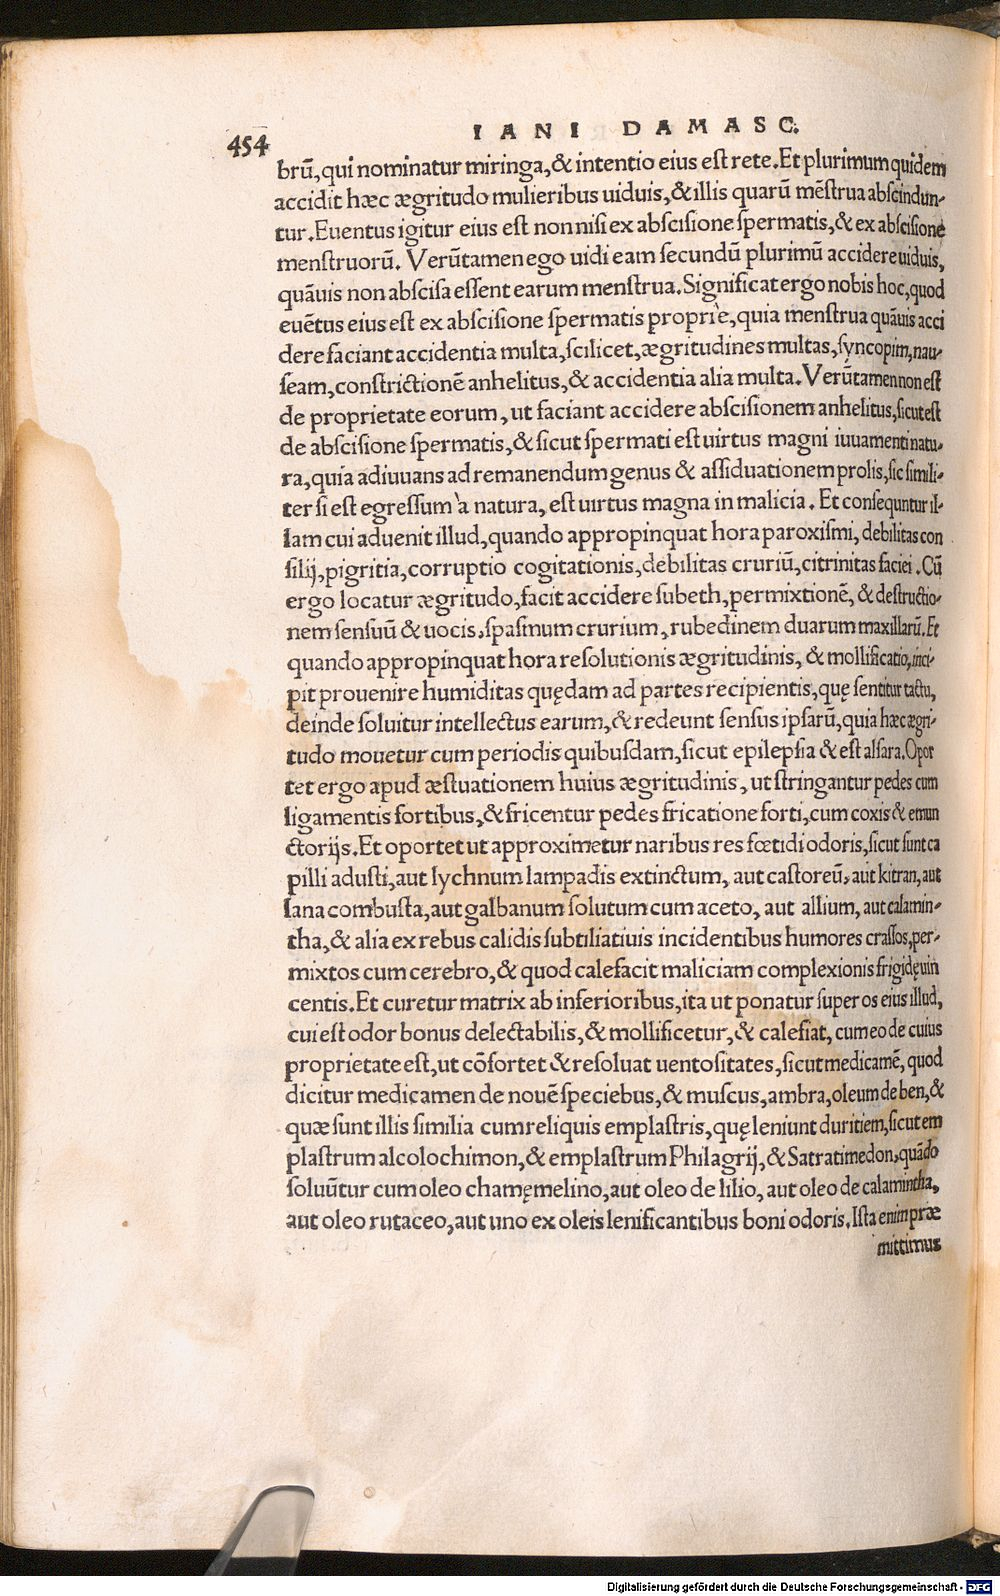 IANI DAMASC.
454
brū, qui nominatur miringa, & intentio eius est rete. Et plurimum quidem
accidit hæc ægritudo mulieribus uiduis, & illis quarū mēstrua abscindun-
tur. Euentus igitur eius est non nisi ex abscisione spermatis, & ex abscisione
menstruorū. Verūtamen ego uidi eam secundū plurimū accidere uiduis,
quāuis non abscisa essent earum menstrua. Significat ergo nobis hoc, quod
euētus eius est ex abscisione spermatis propriè, quia menstrua quāuis acci
dere faciant accidentia multa, scilicet, ægritudines multas, syncopim, nau-
seam, constrictionē anhelitus, & accidentia alia multa. Verūtamen non est
de proprietate eorum, ut faciant accidere abscisionem anhelitus, sicut est
de abscisione spermatis, & sicut spermati est uirtus magni iuuamenti natu-
ra, quia adiuuans ad remanendum genus & assiduationem prolis, sic simili-
ter si est egressum à natura, est uirtus magna in malicia. Et consequntur il-
lam cui aduenit illud, quando appropinquat hora paroxismi, debilitas con
silij, pigritia, corruptio cogitationis, debilitas cruriū, citrinitas faciei. Cū
ergo locatur ægritudo, facit accidere subeth, permixtionē, & destructio-
nem sensuū & uocis, spasmum crurium, rubedinem duarum maxillarū. Et
quando appropinquat hora resolutionis ægritudinis, & mollificatio, inci-
pit prouenire humiditas quędam ad partes recipientis, quę sentitur tactu,
deinde soluitur intellectus earum, & redeunt sensus ipsarū, quia hæc ægri-
tudo mouetur cum periodis quibusdam, sicut epilepsia & est alsara. Opor
tet ergo apud æstuationem huius ægritudinis, ut stringantur pedes cum
ligamentis fortibus, & fricentur pedes fricatione forti, cum coxis & emun
ctorijs. Et oportet ut approximetur naribus res fœtidi odoris, sicut sunt ca
pilli adusti, aut lychnum lampadis extinctum, aut castoreū, aut kitran, aut
lana combusta, aut galbanum solutum cum aceto, aut allium, aut calamin-
tha, & alia ex rebus calidis subtiliatiuis incidentibus humores crassos, per-
mixtos cum cerebro, & quod calefacit maliciam complexionis frigidę uin
centis. Et curetur matrix ab inferioribus, ita ut ponatur super os eius illud,
cui est odor bonus delectabilis, & mollificetur, & calefiat, cum eo de cuius
proprietate est, ut cōfortet & resoluat uentositates, sicut medicamē, quod
dicitur medicamen de nouē speciebus, & muscus, ambra, oleum de ben, &
quæ sunt illis similia cum reliquis emplastris, quę leniunt duritiem, sicut em
plastrum alcolochimon, & emplastrum Philagrij, & Satratimedon, quādo
soluūtur cum oleo chamęmelino, aut oleo de lilio, aut oleo de calamintha,
aut oleo rutaceo, aut uno ex oleis lenificantibus boni odoris. Ista enim præ
mittimus
Digitalisierung gefördert durch die Deutsche Forschungsgemeinschaft - DFG